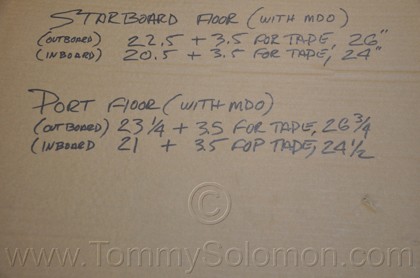 STARBOARD FLOOR (WITH MDO)
(OUTBOARD) 22.5 + 3.5 FOR TAPE, 26"
(INBOARD) 20.5 + 3.5 FOR TAPE, 24"
PORT FLOOR (WITH MDO)
(OUTBOARD) 23 1/4 + 3.5 FOR TAPE, 26 3/4
(INBOARD 21 + 3.5 FOR TAPE, 24 1/2
©
www.TommySolomon.com